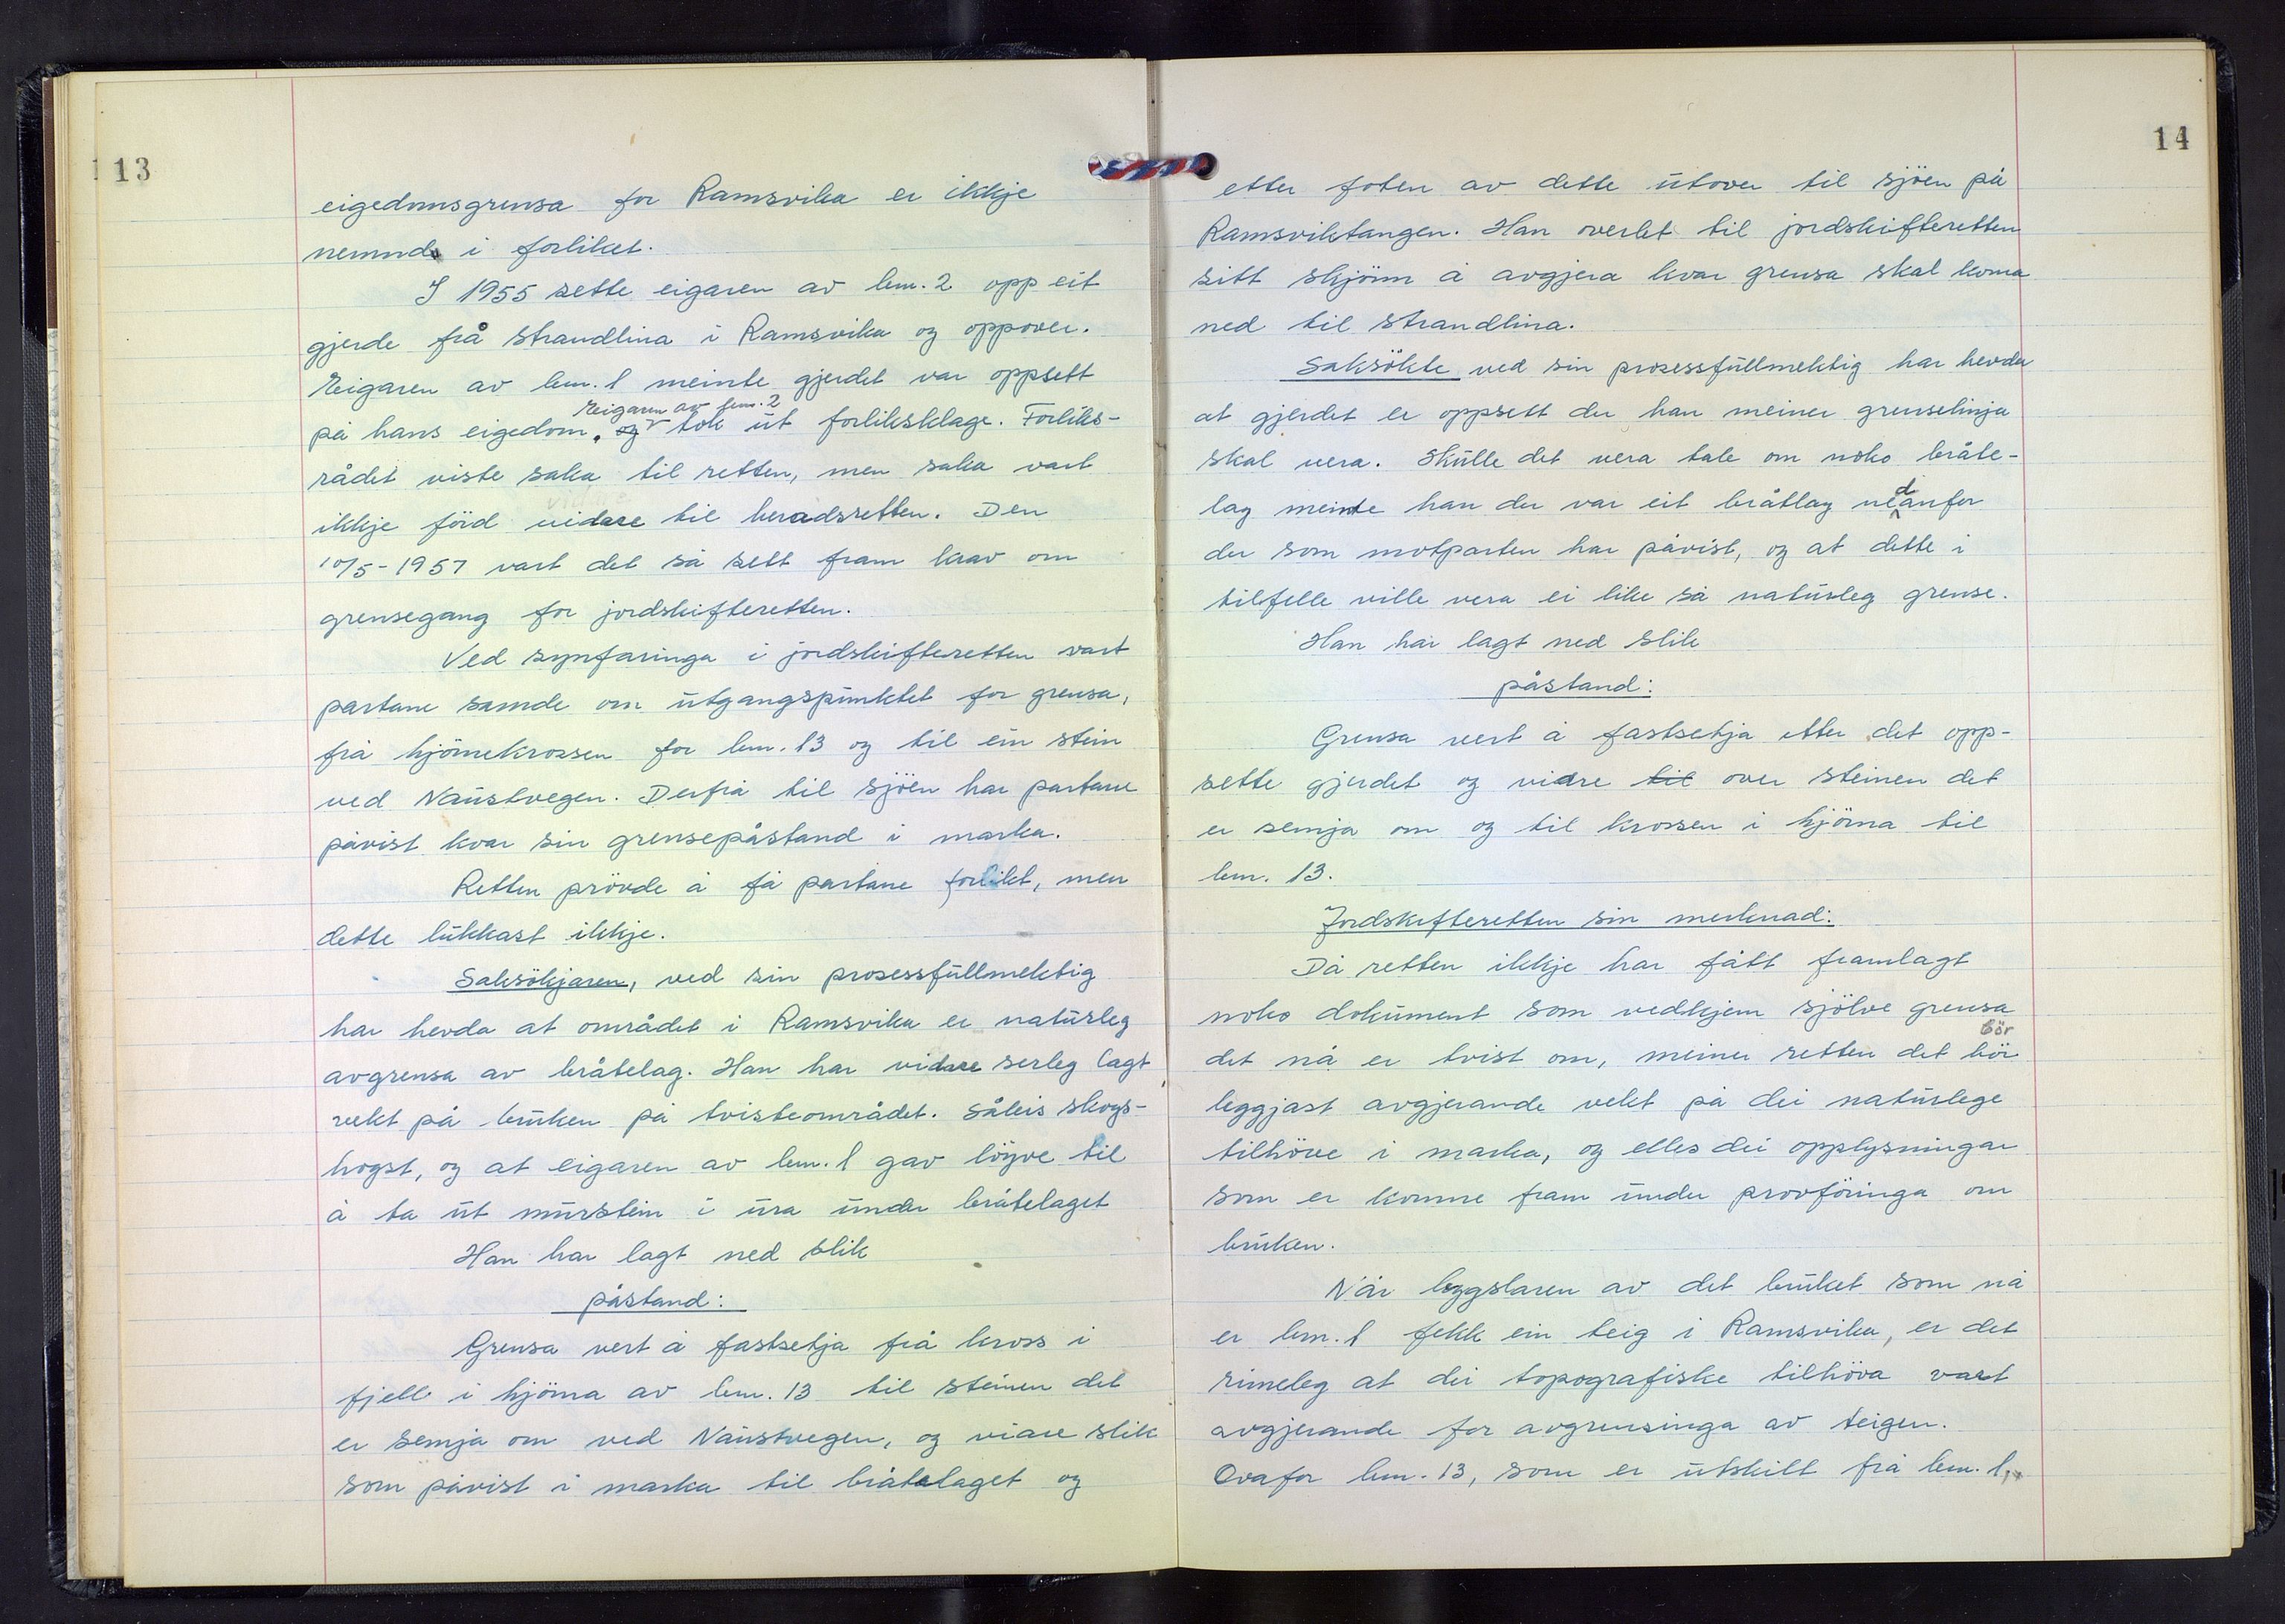 13
eigedomsgrensa for Ramsvika er ikkje
nemnd i forliket.
I 1955 sette eigaren av bnr. 2 opp eit
gjerde frå strandlina i Ramsvika og oppover.
Eigaren av bnr. 1 meinte gjerdet var oppsett
Eigaren av bnr. 2
på hans eigedom. og tok ut forliksklage. Forliks-
rådet viste saka til retten, men saka vart
ikkje förd vidare til heradsretten. Den
10/5-1957 vart det så sett fram krav om
grensegang for jordskifteretten.
Ved synfaringa i jordskifteretten vart
partane samde om utgangspunktet for grensa,
frå hjörnekrossen for bnr. 13 og til ein stein
ved Naustvegen. Derfrå til sjöen har partane
påvist kvar sin grensepåstand i marka.
Retten prövde å få partane forlikt, men
dette lukkast ikkje.
Saksökjaren, ved sin prosessfullmektig
har hevda at området i Ramsvika er naturleg
avgrensa av bråtelag. Han har vidare serleg lagt
vekt på bruken på tvisteområdet. Såleis skogs-
hogst, og at eigaren av bnr. 1 gav löyve til
å ta ut murstein i ura under bråtelaget
Han har lagt ned slik
påstand:
Grensa vert å fastsetja frå kross i
fjell i hjörna av bnr. 13 til steinen det
er semja om ved Naustvegen, og viare slik
som påvist i marka til bråtelaget og
14
etter foten av dette utover til sjöen på
Ramsviktangen. Han overlet til jordskifteretten
sitt skjönn å avgjera kvar grensa skal koma
ned til strandlina.
Saksökte ved sin prosessfullmektig har hevda
at gjerdet er oppsett der han meiner grenselinja
skal vera. Skulle det vera tale om noko bråte-
lag meinte han der var eit bråtlag nedanfor
der som motparten har påvist, og at dette i
tilfelle ville vera ei like så naturleg grense.
Han har lagt ned slik
påstand:
Grensa vert å fastsetja etter det opp-
sette gjerdet og vidre til over steinen det
er semja om og til krossen i hjörna til
bnr. 13.
Jordskifteretten sin merknad:
Då retten ikkje har fått framlagt
noko dokument som vedkjem sjölve grensa
bör
det nå er tvist om, meiner retten det bör
leggjast avgjerande vekt på dei naturlege
tilhöve i marka, og elles dei opplysningar
som er komne fram under provföringa om
bruken.
Når bygslaren av det bruket som nå
er bnr. 1 fekk ein teig i Ramsvika, er det
rimeleg at dei topografiske tilhöva vart
avgjerande for avgrensinga av teigen.
Ovafor bnr. 13, som er utskilt frå bnr. 1,